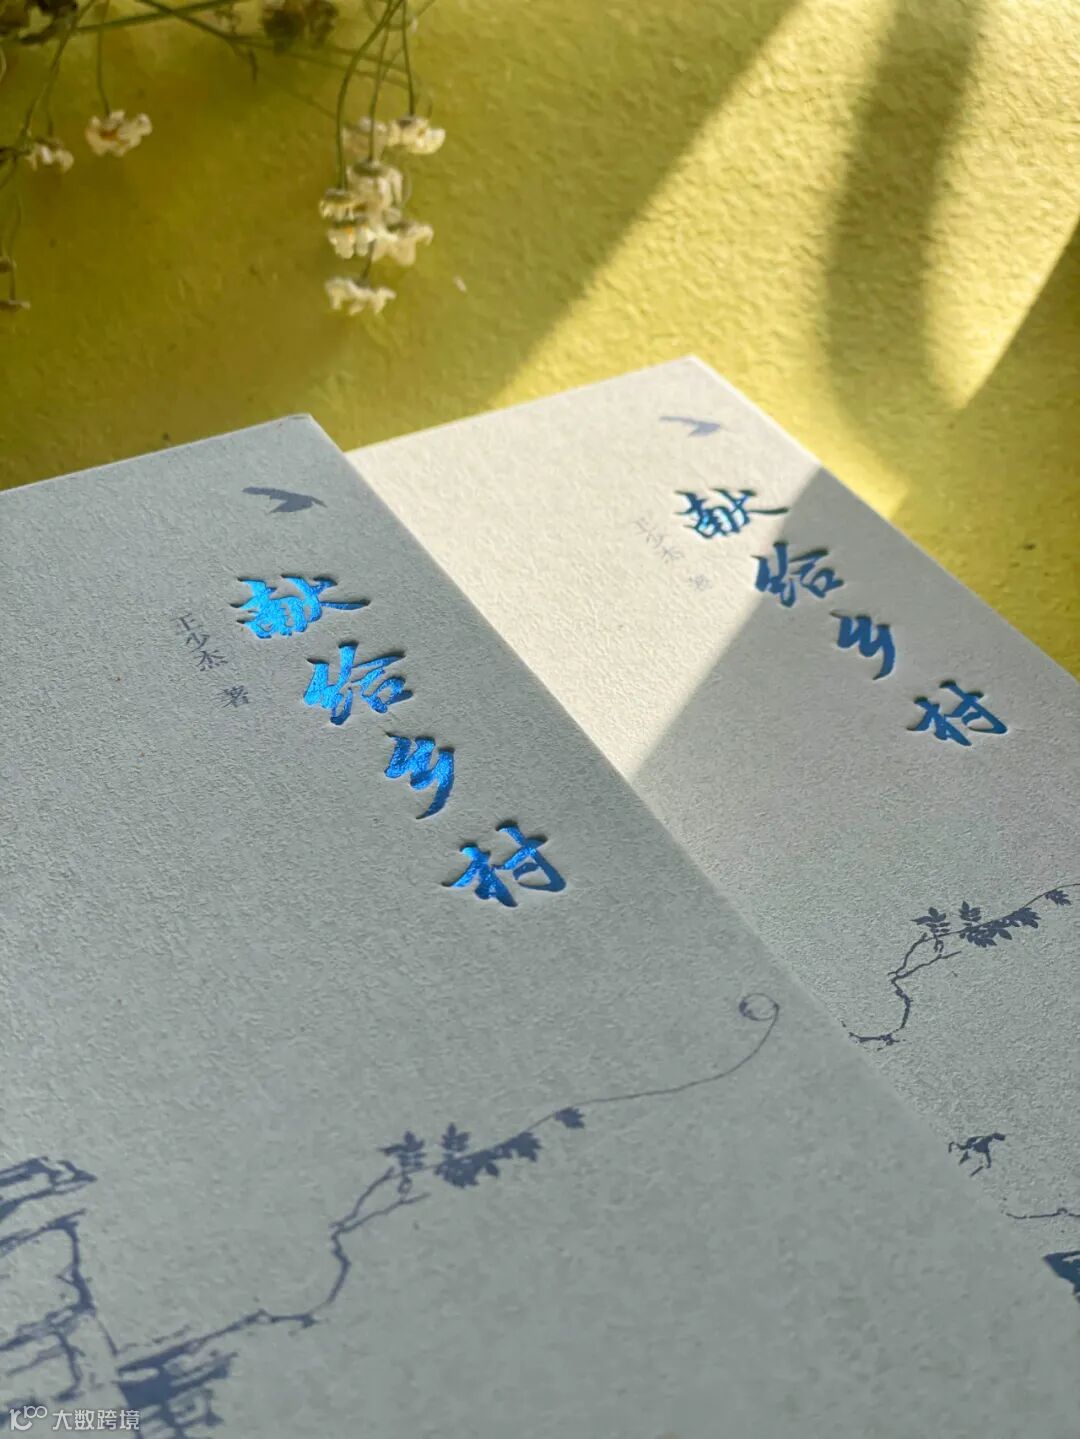 献给乡村
王少杰 著
献给乡村
王少杰 著
大数跨境